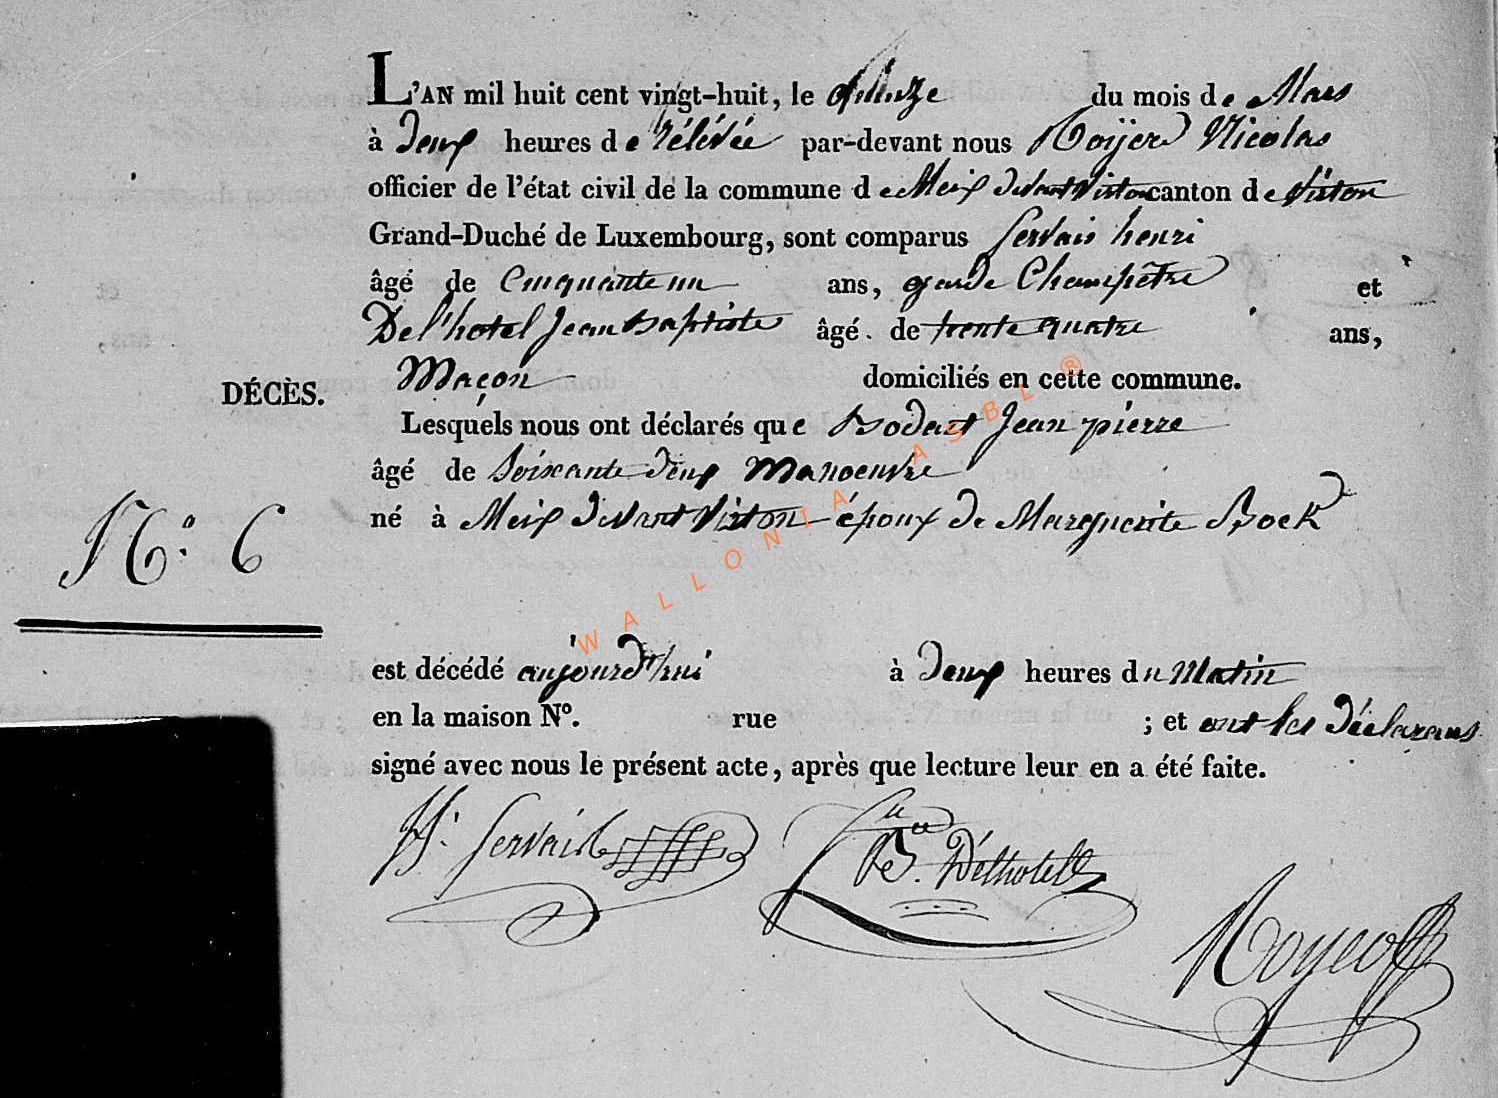 L'AN mil huit cent vingt-huit, le quinze du mois de Mars
à deux heures de rélévée par-devant nous Roÿer Nicolas
officier de l'état civil de la commune de Meix devant Virton canton de Virton
Grand-Duché de Luxembourg, sont comparus Servais henri
âgé de Cinquante un ans, garde Champêtre et
Del'hotel Jean Baptiste âgé de trente quatre ans,
Maçon domiciliés en cette commune.
DÉCÈS.
Lesquels nous ont déclarés que Bodart Jean pierre
âgé de Soixante deux Manoeuvre
né à Meix devant Virton époux de Marguerite Bock
N.° 6
est décédé aujourd'hui à deux heures du Matin
en la maison N°. rue ; et ont les déclarans
signé avec nous le présent acte, après que lecture leur en a été faite.
H. Servais
Delhotel
Royer
WALLONIA ASBL ®